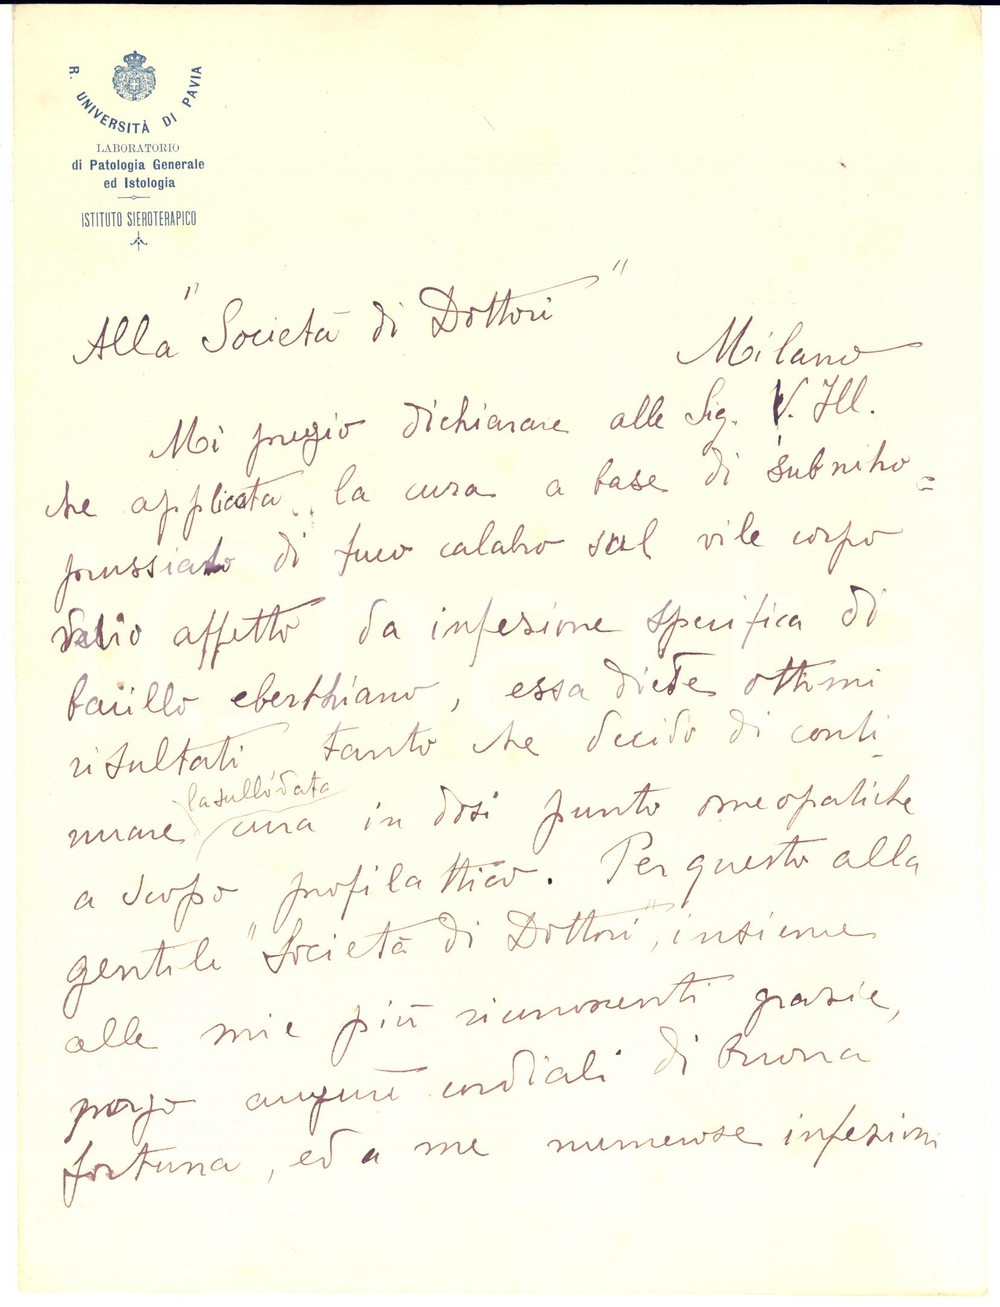 R. UNIVERSITÀ DI PAVIA
LABORATORIO
di Patologia Generale
ed Istologia
ISTITUTO SIEROTERAPICO
Alla "Società di Dottori"
Milano
Mi pregio dichiarare alle Sig. V. Ill.
che applicata la cura a base di subnitro=
prussiato di fuco calabro sul vile corpo
affetto da infezione specifica di
bacillo eberthiano, essa diede ottimi
risultati tanto che decido di conti-
nuare la sullodata cura in dosi punto omeopatiche
a scopo profilattico. Per questo alla
gentile "Società di Dottori", insieme
alle mie più riconoscenti grazie,
porgo augurî cordiali di buona
fortuna, ed a me numerose infezioni